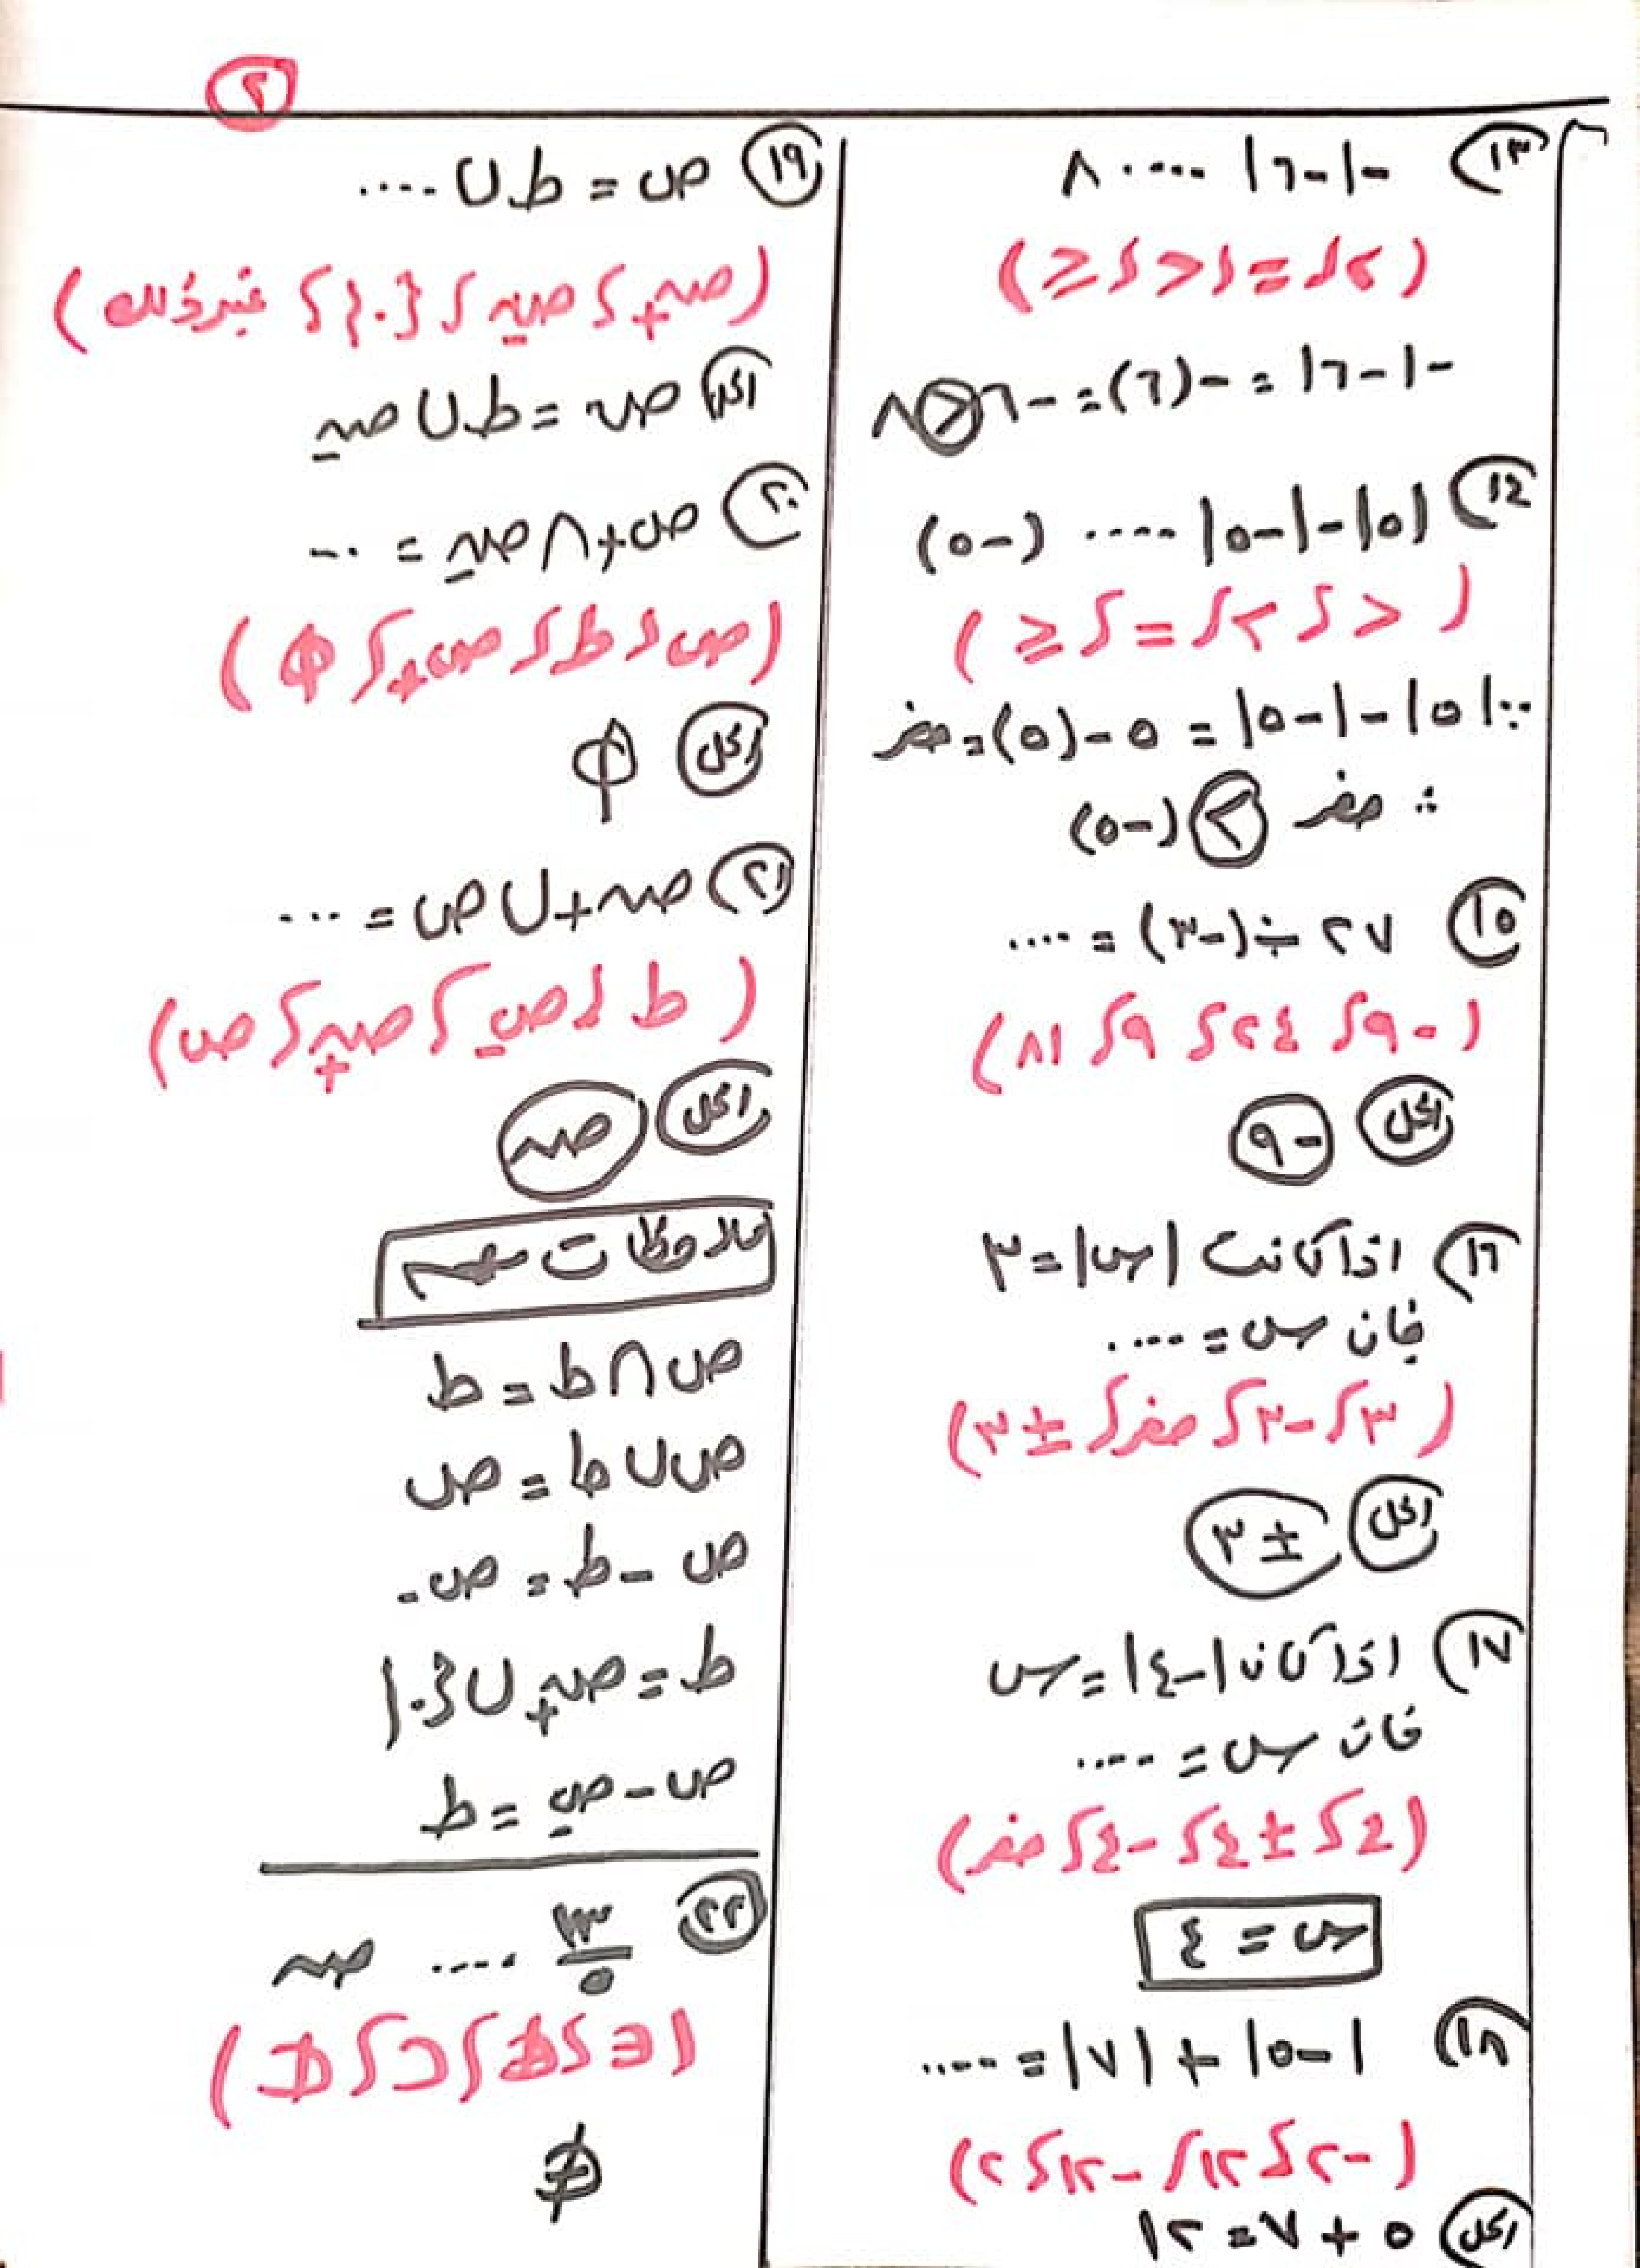 ٢
١٣ -|-٦| .... ٨
(> ، = ، < ، ≤)
-|-٦| = -(٦) = -٦ < ٨
١٤ |٥|-|-٥| .... (-٥)
(< ، > ، = ، ≤)
∵ |٥|-|-٥| = ٥-(٥) = صفر
∴ صفر > (-٥)
١٥ ٢٧ ÷ (-٣) = ....
(-٩ ، ٢٤ ، ٩ ، ٨١)
الحل -٩
١٦ اذا كانت |س| = ٣
فان س = ....
(٣ ، -٣ ، صفر ، ±٣)
الحل ±٣
١٧ اذا كان |-٤| = س
فان س = ....
(٤ ، ±٤ ، -٤ ، صفر)
س = ٤
١٨ |-٥| + |٧| = ....
(-٢ ، ١٢ ، -١٢ ، ٢)
الحل ٥ + ٧ = ١٢
١٩ ص = ط ∪ ....
(ص+ ، ص- ، {٠} ، غير ذلك)
الحل ص = ط ∪ ص-
٢٠ ص+ ∩ ص- = ...
(ص ، ط ، ص+ ، ϕ)
الحل ϕ
٢١ ص+ ∪ ص = ...
(ط ، ص- ، ص+ ، ص)
الحل ص
ملاحظات
ص ∩ ط = ط
ص ∪ ط = ص
ص - ط = ص-
ط = ص+ ∪ {٠}
ص - ص- = ط
٢٢ ١٣/٥ .... ص
(∈ ، ∉ ، ⊂ ، ⊄)
∉